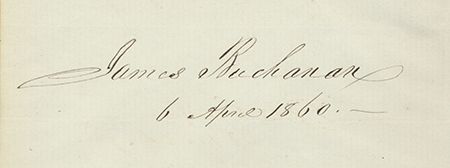 James Buchanan
6 April 1860. —